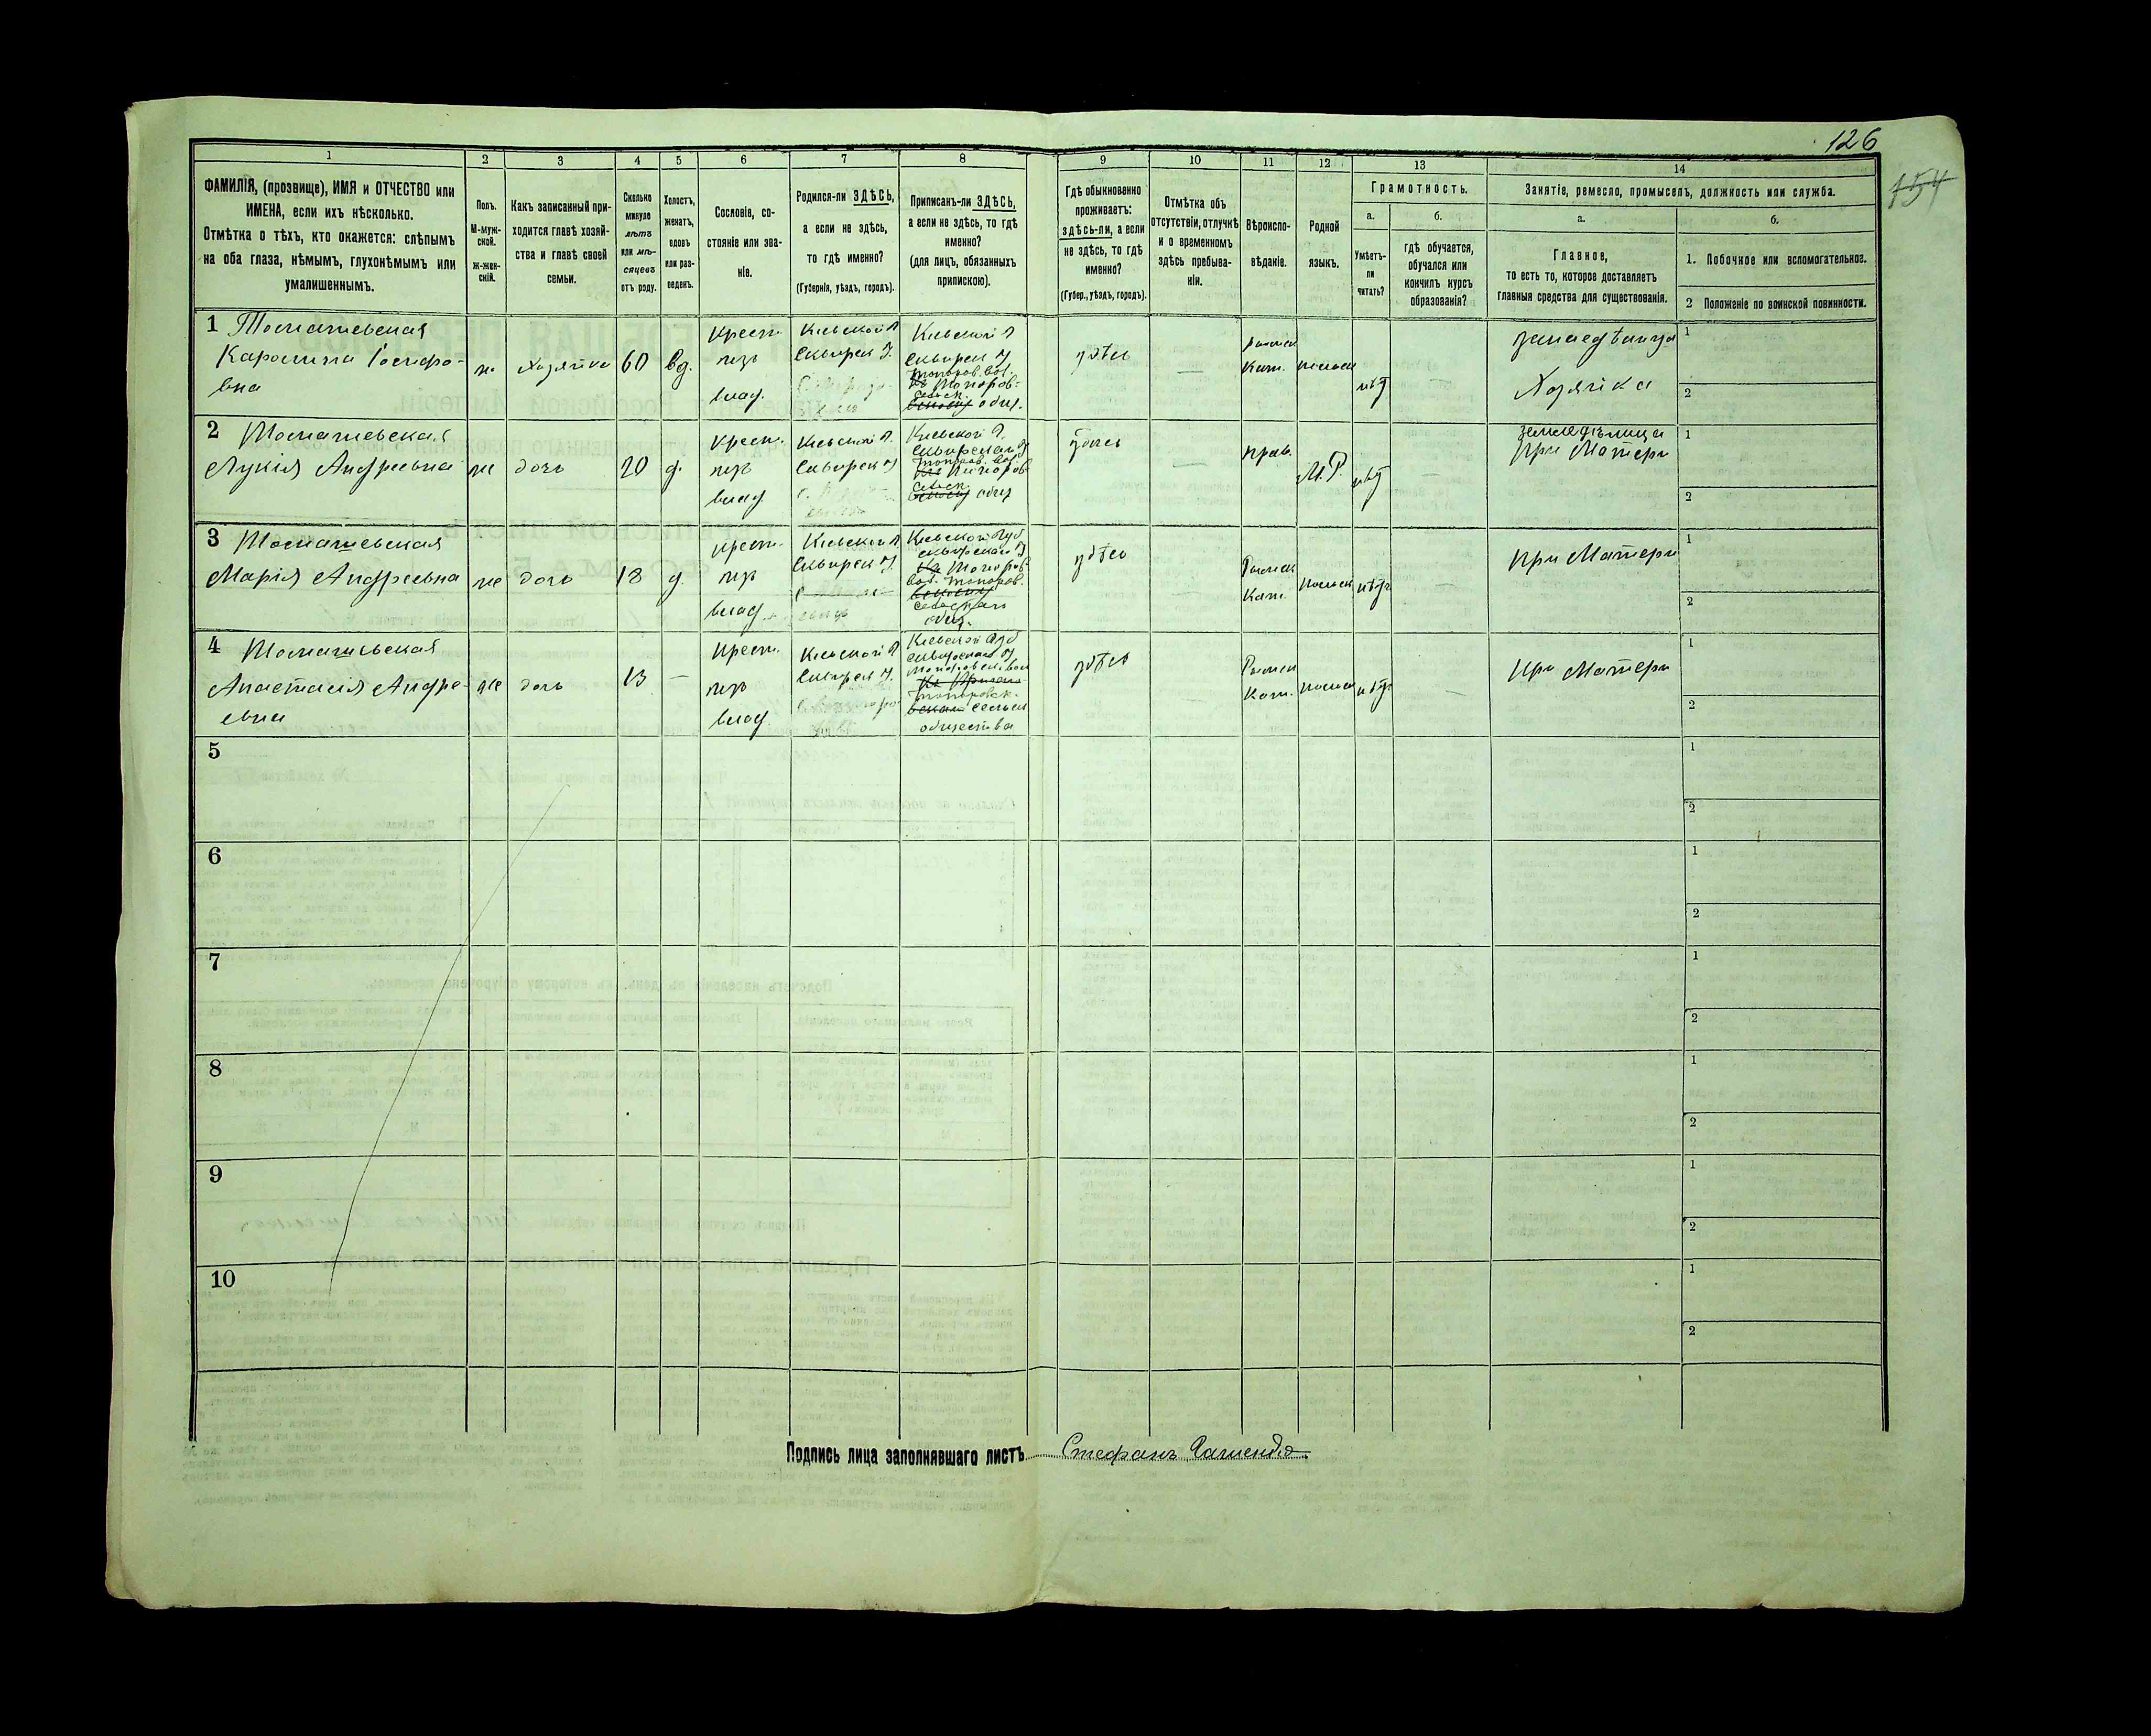 126
154
1 2 3 4 5 6 7 8 9 10 11 12 13 14
ФАМИЛІЯ, (прозвище), ИМЯ и ОТЧЕСТВО или
ИМЕНА, если ихъ нѣсколько.
Отмѣтка о тѣхъ, кто окажется: слѣпымъ
на оба глаза, нѣмымъ, глухонѣмымъ или
умалишеннымъ.
Полъ.
М-муж-
ской.
ж-жен-
скій.
Какъ записанный при-
ходится главѣ хозяй-
ства и главѣ своей
семьи.
Сколько
минуло
лѣтъ
или мѣ-
сяцевъ
отъ роду.
Холостъ,
женатъ,
вдовъ
или раз-
веденъ.
Сословіе, со-
стояніе или зва-
ніе.
Родился-ли ЗДѢСЬ,
а если не здѣсь,
то гдѣ именно?
(Губернія, уѣздъ, городъ).
Приписанъ-ли ЗДѢСЬ,
а если не здѣсь, то гдѣ
именно?
(для лицъ, обязанныхъ
припискою).
Гдѣ обыкновенно
проживаетъ:
здѣсь-ли, а если
не здѣсь, то гдѣ
именно?
(Губер., уѣздъ, городъ).
Отмѣтка объ
отсутствіи, отлучкѣ
и о временномъ
здѣсь пребыва-
ніи.
Вѣроиспо-
вѣданіе.
Родной
языкъ.
Грамотность.
а.
Умѣетъ-
ли
читать?
б.
гдѣ обучается,
обучался или
кончилъ курсъ
образованія?
Занятіе, ремесло, промыселъ, должность или служба.
а.
Главное,
то есть то, которое доставляетъ
главныя средства для существованія.
б.
1. Побочное или вспомогательное.
2 Положеніе по воинской повинности.
1 Томашевская
Каролина Іосифо-
вна
ж. Хозяйка 60 вд.
крест.
изъ
влад.
Кіевской г
Сквирск у.
Кіевской г
Сквирск у
Топоров. вол.
Топоров-
сельск.
общ.
здѣсь
—
Римск
Кат.
польск
нѣт
—
Хозяйка
1
2
2 Томашевская
Лукія Андреевна
же дочь 20 д.
крест.
изъ
влад
Кіевской г.
Сквирск у
Кіевской г.
Сквирскаг. у
Топоров. вол.
Топоров
сельск.
общ
здѣсь
—
прав.
М.Р.
нѣт
—
земледѣлица
при Матери
1
2
3 Томашевская
Марія Андреевна
же дочь 18 д.
крест.
изъ
влад
Кіевской г
Сквирск у.
Кіевской Губ
Сквирскаго у
Топоров
вол. Топоров.
сельскаго
общ.
здѣсь
—
Римск
Кат.
польск
нѣтъ
—
при Матери
1
2
4 Томашевская
Анастасія Андре-
евна
же дочь 13 —
крест.
изъ
влад.
Кіевской г
Сквирск у.
Кіевской Губ
Сквирскаго у
Топоровск.
сельск
общества
здѣсь
—
Римск
Кат.
польск
нѣтъ
—
при Матери
1
2
5
1
2
6
1
2
7
1
2
8
1
2
9
1
2
10
1
2
Подпись лица заполнявшаго листъ Стефанъ